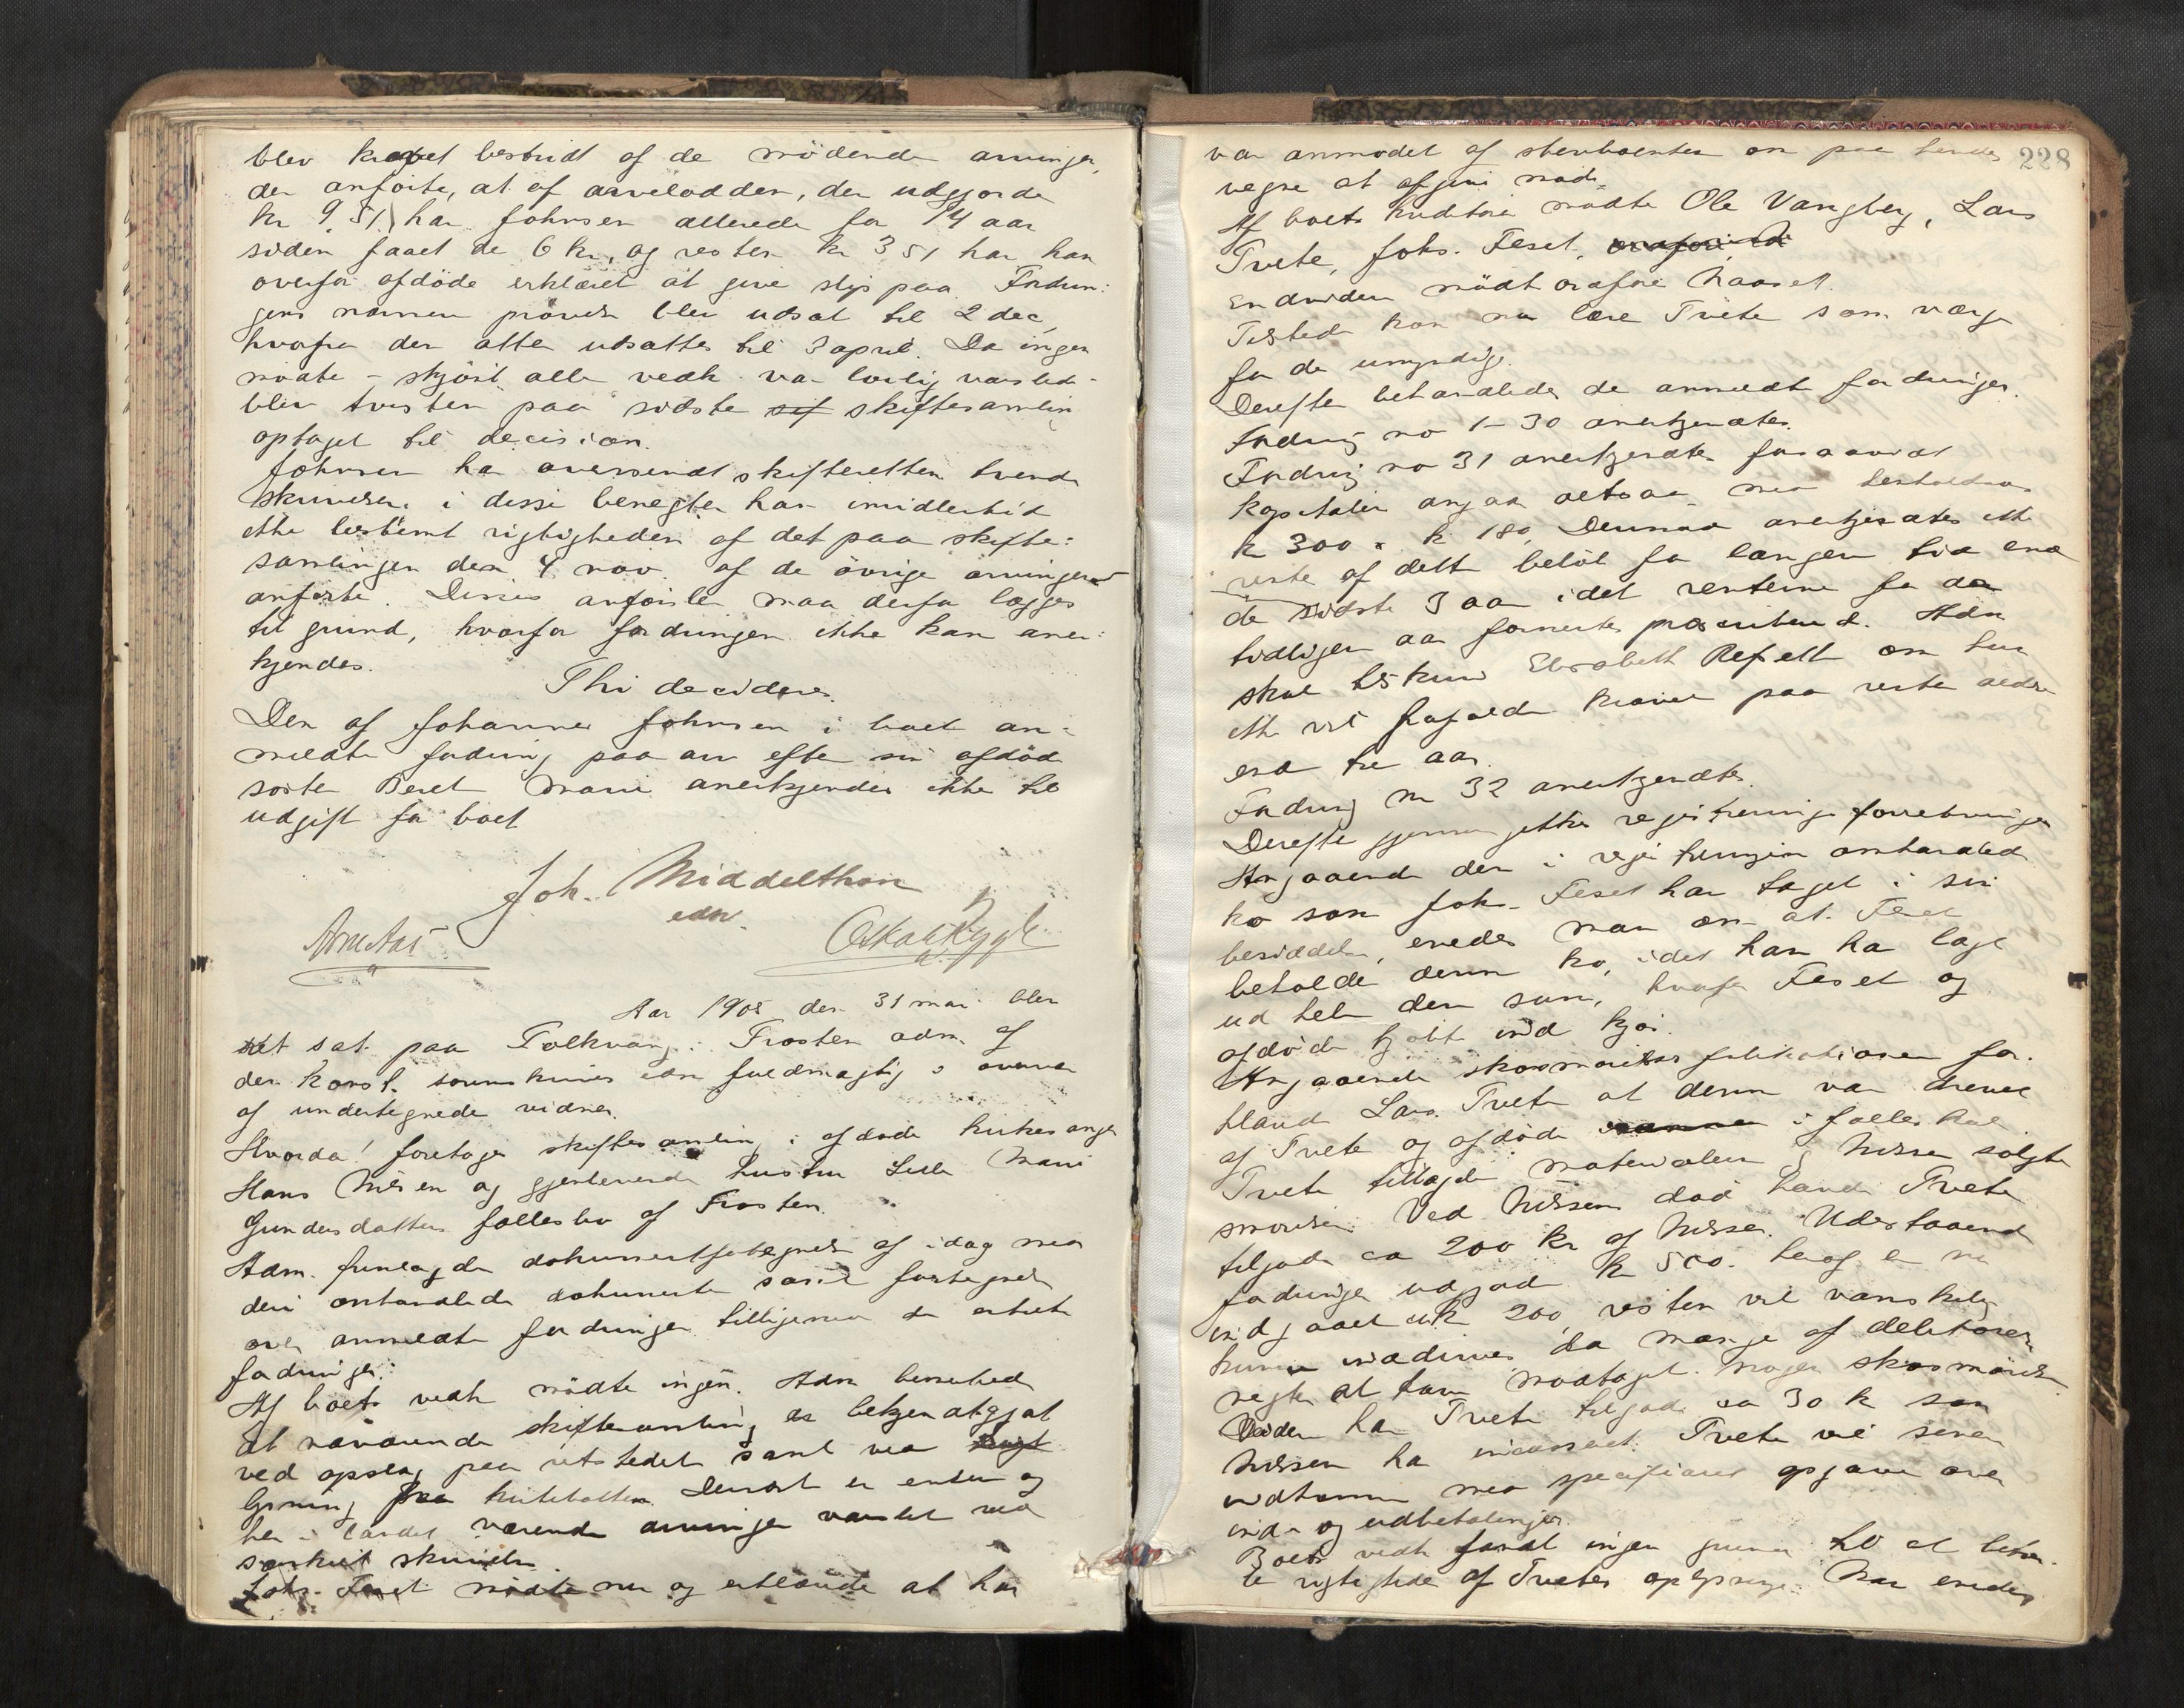 blev kravet bestridt af de mödende arvinger,
der anförte, at af arvelodden, der udgjorde
kr 9.51, har Johnsen allerede for 14 aar
siden faaet de 6 kr, og resten kr 3 51 har han
overfor afdöde erklæret at give slip paa. Fordrin:
gens nærmere prövelse blev udsat til 2 dec,
hvorfra den atter udsattes til 3 april. Da ingen
mödte - skjönt alle vedk. var lovlig varslede -
blev tvisten paa sidste sif skiftesamling
optaget til decision.
Johnsen har oversendt skifteretten tvende
skrivelser, i disse benegter han imidlertid
ikke bestemt rigtigheden af det paa skifte:
samlingen den 4 nov. af de övrige arvinger
anförte. Disses anförsler maa derfor lægges
til grund, hvorfor fordringen ikke kan aner:
kjendes.
Thi decideres.
Den af Johannes Johnsen i boet an-
meldte fordring paa arv efter sin afdöde
söster Beret Marie anerkjendes ikke til
udgift for boet
Joh. Middelthon
edsv.
Arne Aas Oskar Rygh
Aar 1908 den 31 mai blev
ret sat paa Folkvang i Frosten adm. af
den konst. sorenskrivers edsv fuldmægtig i overvær
af undertegnede vidner.
Hvorda! foretoges skiftesamling i afdöde kirkesanger
Hans Nilsen og gjenlevende hustru Marie
Gundersdatters fællesbo af Frosten.
Adm. fremlagde dokumentfortegnelse af idag med
deri omhandlede dokumenter samt fortegnelse
over anmeldte fordringer tilligemed de enkelte
fordringer.
Af boets vedk mödte ingen. Adm bemerkede
at nærværende skiftesamling er bekjendtgjort
ved opslag paa retstedet samt ved
lysning fra kirkebakken. Dernæst er enken og
her i landet værende arvinger varslet ved
særskilt skrivelse.
Johs. Feset mödte nu og erklærede at han
228
var anmodet af sterboenken om paa hendes
vegne at afgive möde.
Af boets kreditorer mödte Ole Vangberg, Lars
Tvete, Johs. Feset,
Endvidere mödte Haaset.
Tilstede kom nu Tvete som værge
for de umyndige.
Derefter behandledes de anmeldte fordringer.
Fordring no 1-30 anerkjendtes.
Fordring no 31 anerkjendtes forsaavidt
kapitalen angaar altsaa med
kr 300 + kr 180. Derimod anerkjendtes ikke
rente af dette belöb for længere tid end
de sidste 3 aar idet renterne for de
tidligere aar formentes præskriberet. Adm
skal tilskrive Elisabeth Refsett om hun
ikke vil frafalde kravet paa rente ældre
end tre aar.
Fordring nr 32 anerkjendtes.
Derefter gjennemgikkes registreringsforretningen
Angaaende den i registreringen omhandlede
ko som Johs. Feset har taget i sin
besiddelse, enedes man om at Feset
beholder denne ko, idet han har lagt
ud hele den sum, hvorfor Feset og
afdöde kjöbte ind kjör.
Angaaende skosmörelse fabrikationen for-
klarede Lars Tvete at denne var drevet
af Tvete og afdöde i fælleskab
Tvete tillagde materialier og Nilsen solgte
smörelsen. Ved Nilsens död havde Tvete
tilgode ca 200 kr af Nilsen. Udestaaende
fordringer udgjorde kr 500. heraf er nu
indgaaet ca kr 200, resten vil vanskelig
kunne inddrives da mange af debitorerne
negter at have modtaget nogen skosmörelse.
Videre har Tvete tilgode ca 30 kr som
Nilsen har incasseret. Tvete vil senere
indkomme med specificeret opgave over
ind- og udbetalinger.
Boets vedk fandt ingen grund til at betvi-
le rigtigheden af Tvetes oplysninger. Man enedes